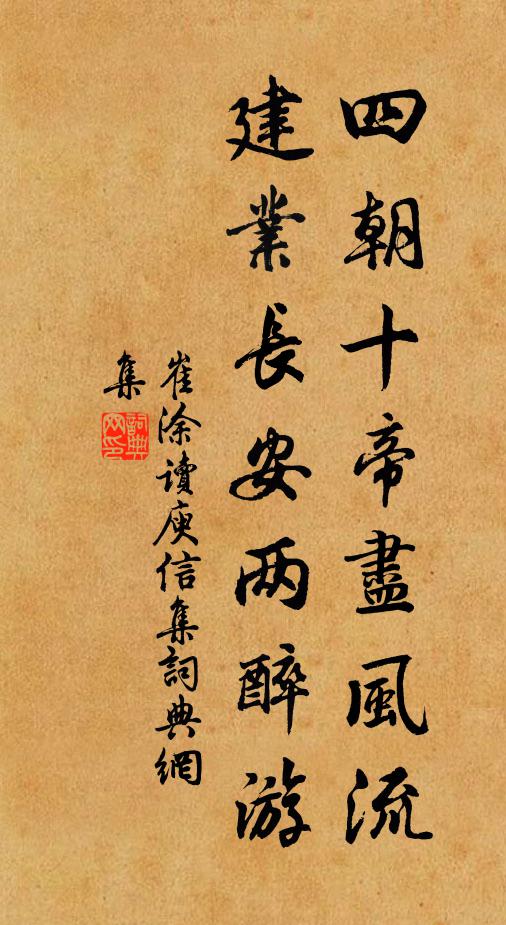 四朝十帝盡風流
建業長安两醉游
崔涂讀庾信集詞典網
集
詞典
网印